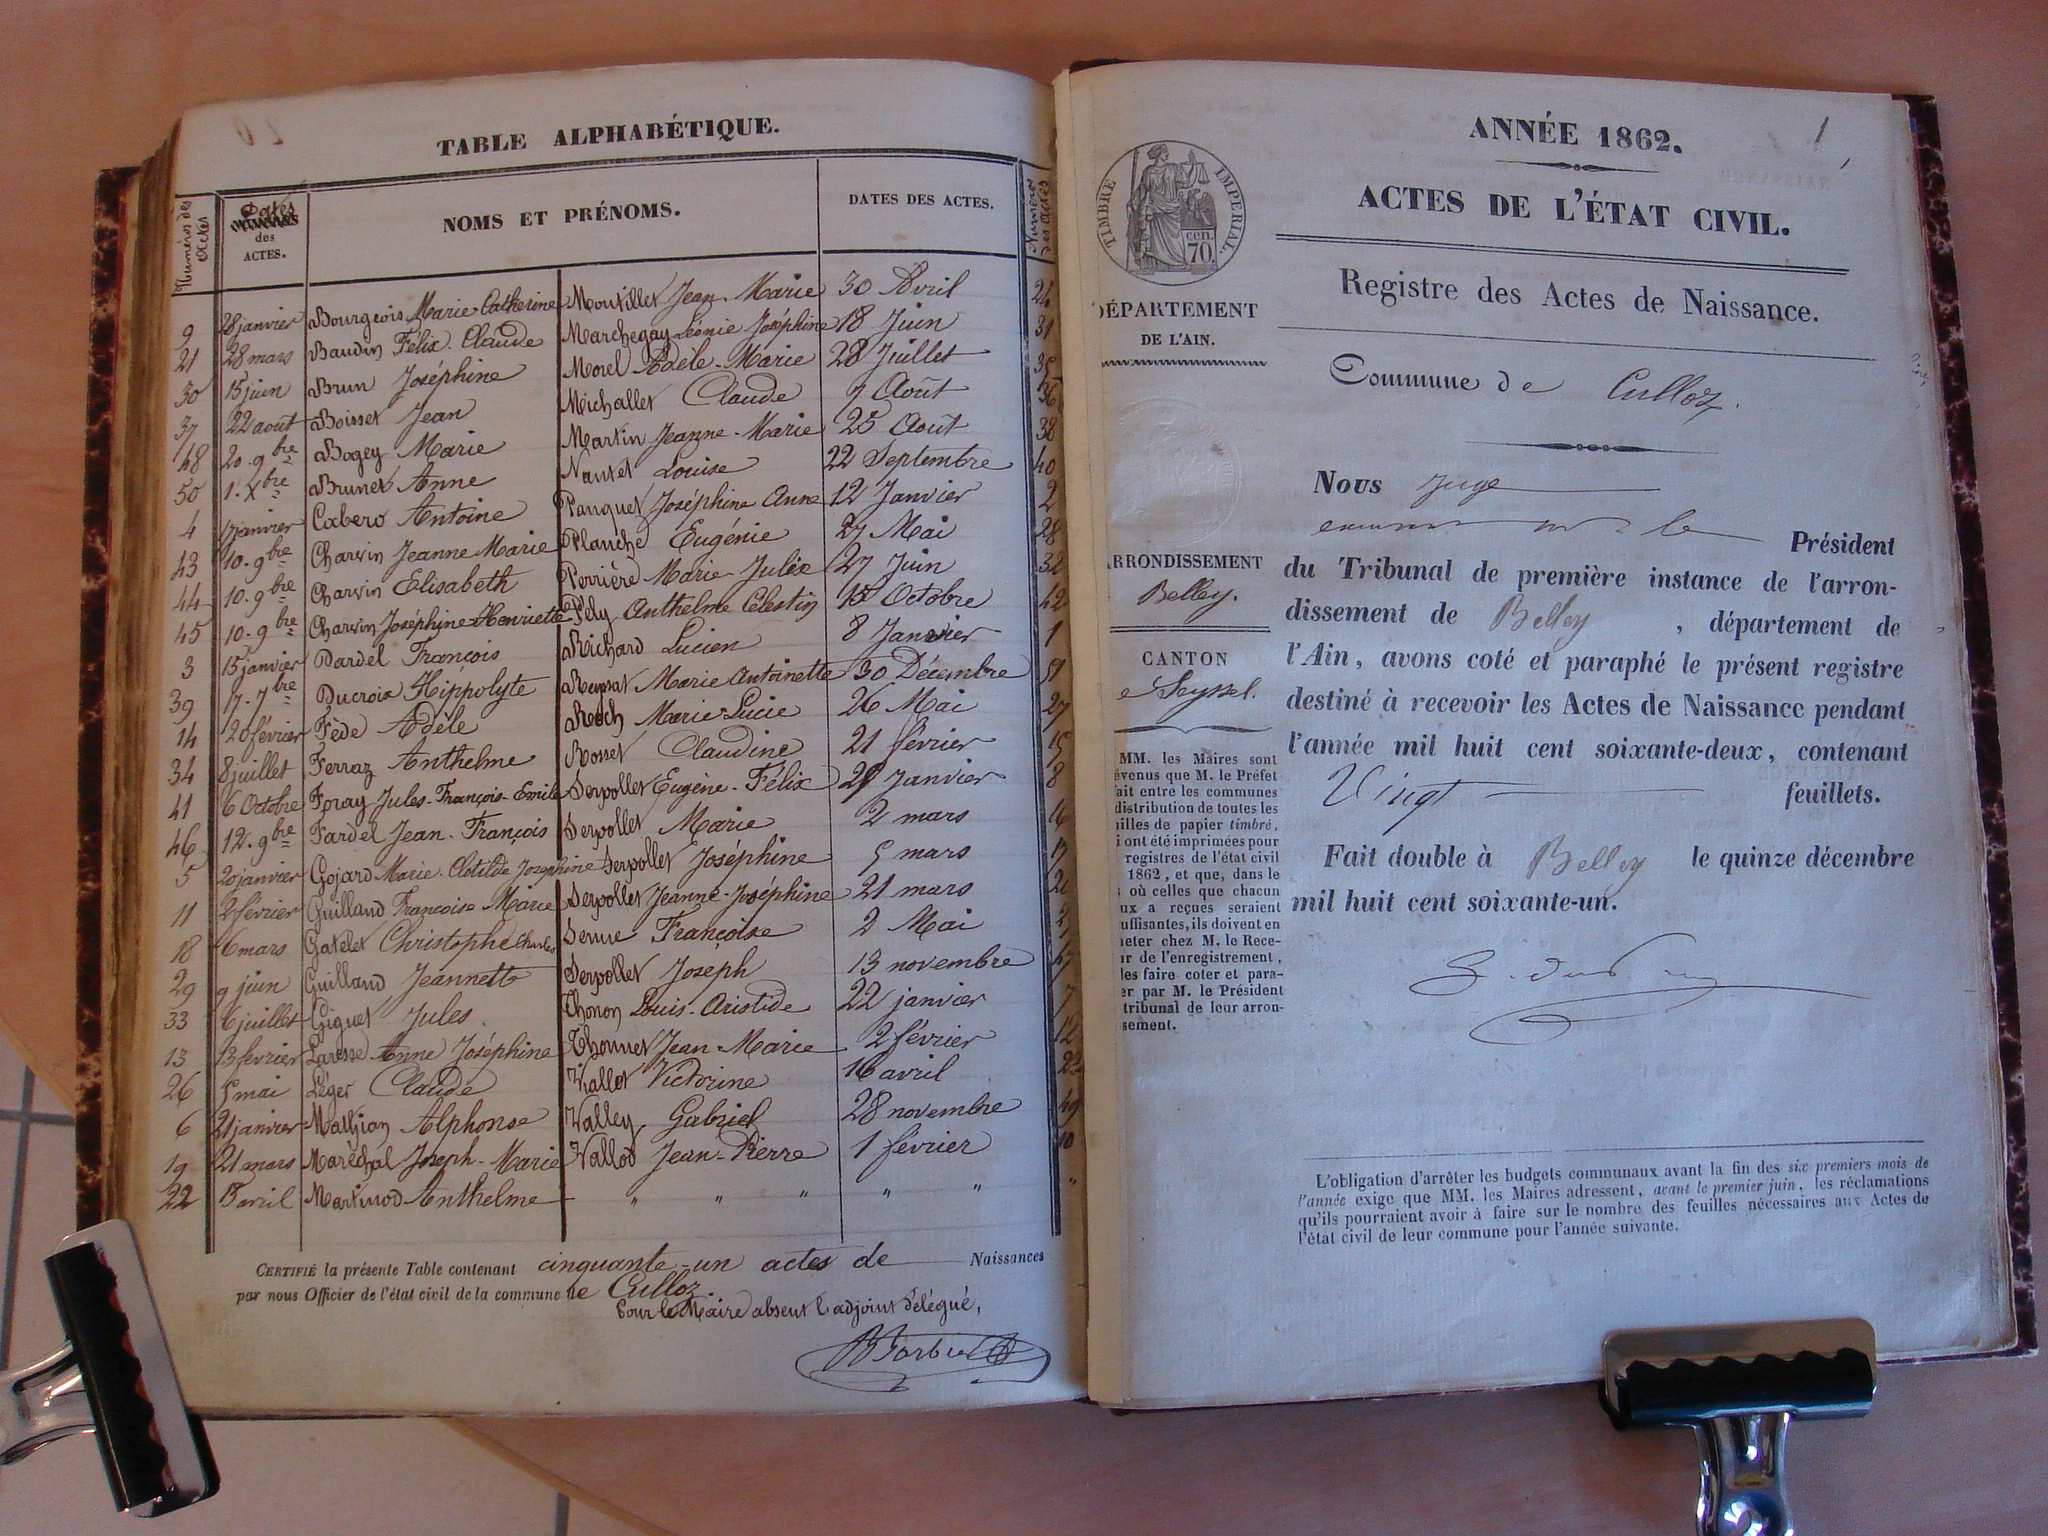 TABLE ALPHABÉTIQUE.
Numéros des actes
Dates
des
ACTES.
NOMS ET PRÉNOMS.
DATES DES ACTES.
Numéros des actes
9 28 janvier Bourgeois Marie-Catherine Montillet Jean-Marie 30 Avril 24
21 28 mars Baudin Félix-Claude Marchegay Léonie Joséphine 18 Juin 31
30 15 juin Brun Joséphine Morel Adèle-Marie 28 Juillet 35
37 22 août Boisset Jean Michallet Claude 9 Août 36
48 20. 9bre Bogey Marie Martin Jeanne-Marie 25 Août 38
50 1. Xbre Brunet Anne Nantet Louise 22 Septembre 40
4 17 janvier Cabero Antoine Panquet Joséphine Anne 12 Janvier 2
43 10. 9bre Charvin Jeanne Marie Planche Eugénie 27 Mai 28
44 10. 9bre Charvin Elisabeth Perrière Marie-Julie 27 Juin 32
45 10. 9bre Charvin Joséphine-Henriette Pély Anthelme Célestin 15 Octobre 42
3 15 janvier Dardel François Richard Lucien 8 Janvier 1
39 17. 7bre Ducroix Hippolyte Marie Antoinette 30 Décembre 51
14 20 février Fède Adèle Roch Marie-Lucie 26 Mai 27
34 8 juillet Ferraz Anthelme Rosset Claudine 21 février 15
41 6 Octobre Foray Jules-François-Emile Serpollet Eugène-Félix Janvier 8
46 12. 9bre Fardel Jean-François Serpollet Marie 2 mars 16
5 20 janvier Gojard Marie-Clotilde Josephine Serpollet Joséphine 5 mars
11 2 février Guilland Françoise Marie Serpollet Jeanne-Joséphine 21 mars
18 6 mars Gatelet Christophe Charles Françoise 2 Mai
29 9 juin Guilland Jeannette Serpollet Joseph 13 novembre 47
33 6 juillet Giguet Jules Thonon Louis-Aristide 22 janvier 7
13 13 février Laresse Anne Joséphine Thonnet Jean-Marie 2 février 12
26 5 mai Léger Claude Viallet Victorine 16 avril 23
6 21 janvier Mathian Alphonse Valley Gabriel 28 novembre 49
19 21 mars Maréchal Joseph-Marie Vallod Jean-Pierre 1 février 10
22 15 avril Martinod Anthelme " " " " " "
CERTIFIÉ la présente Table contenant cinquante-un actes de Naissances
par nous Officier de l'état civil de la commune de Culloz
Pour le Maire absent l'adjoint délégué,
ANNÉE 1862.
1
TIMBRE IMPERIAL.
70 cen.
ACTES DE L'ÉTAT CIVIL.
Registre des Actes de Naissance.
DÉPARTEMENT
DE L'AIN.
Commune de Culloz.
Nous Juge
le Président
ARRONDISSEMENT
Belley.
CANTON
e Seyssel.
du Tribunal de première instance de l'arron-
dissement de Belley, département de
l'Ain, avons coté et paraphé le présent registre
destiné à recevoir les Actes de Naissance pendant
l'année mil huit cent soixante-deux, contenant
Vingt feuillets.
Fait double à Belley le quinze décembre
mil huit cent soixante-un.
MM. les Maires sont
évenus que M. le Préfet
ait entre les communes
distribution de toutes les
illes de papier timbré,
i ont été imprimées pour
registres de l'état civil
1862, et que, dans le
où celles que chacun
ux a reçues seraient
uffisantes, ils doivent en
heter chez M. le Rece-
ur de l'enregistrement,
les faire coter et para-
er par M. le Président
tribunal de leur arron-
sement.
L'obligation d'arrêter les budgets communaux avant la fin des six premiers mois de
l'année exige que MM. les Maires adressent, avant le premier juin, les réclamations
qu'ils pourraient avoir à faire sur le nombre des feuilles nécessaires aux Actes de
l'état civil de leur commune pour l'année suivante.